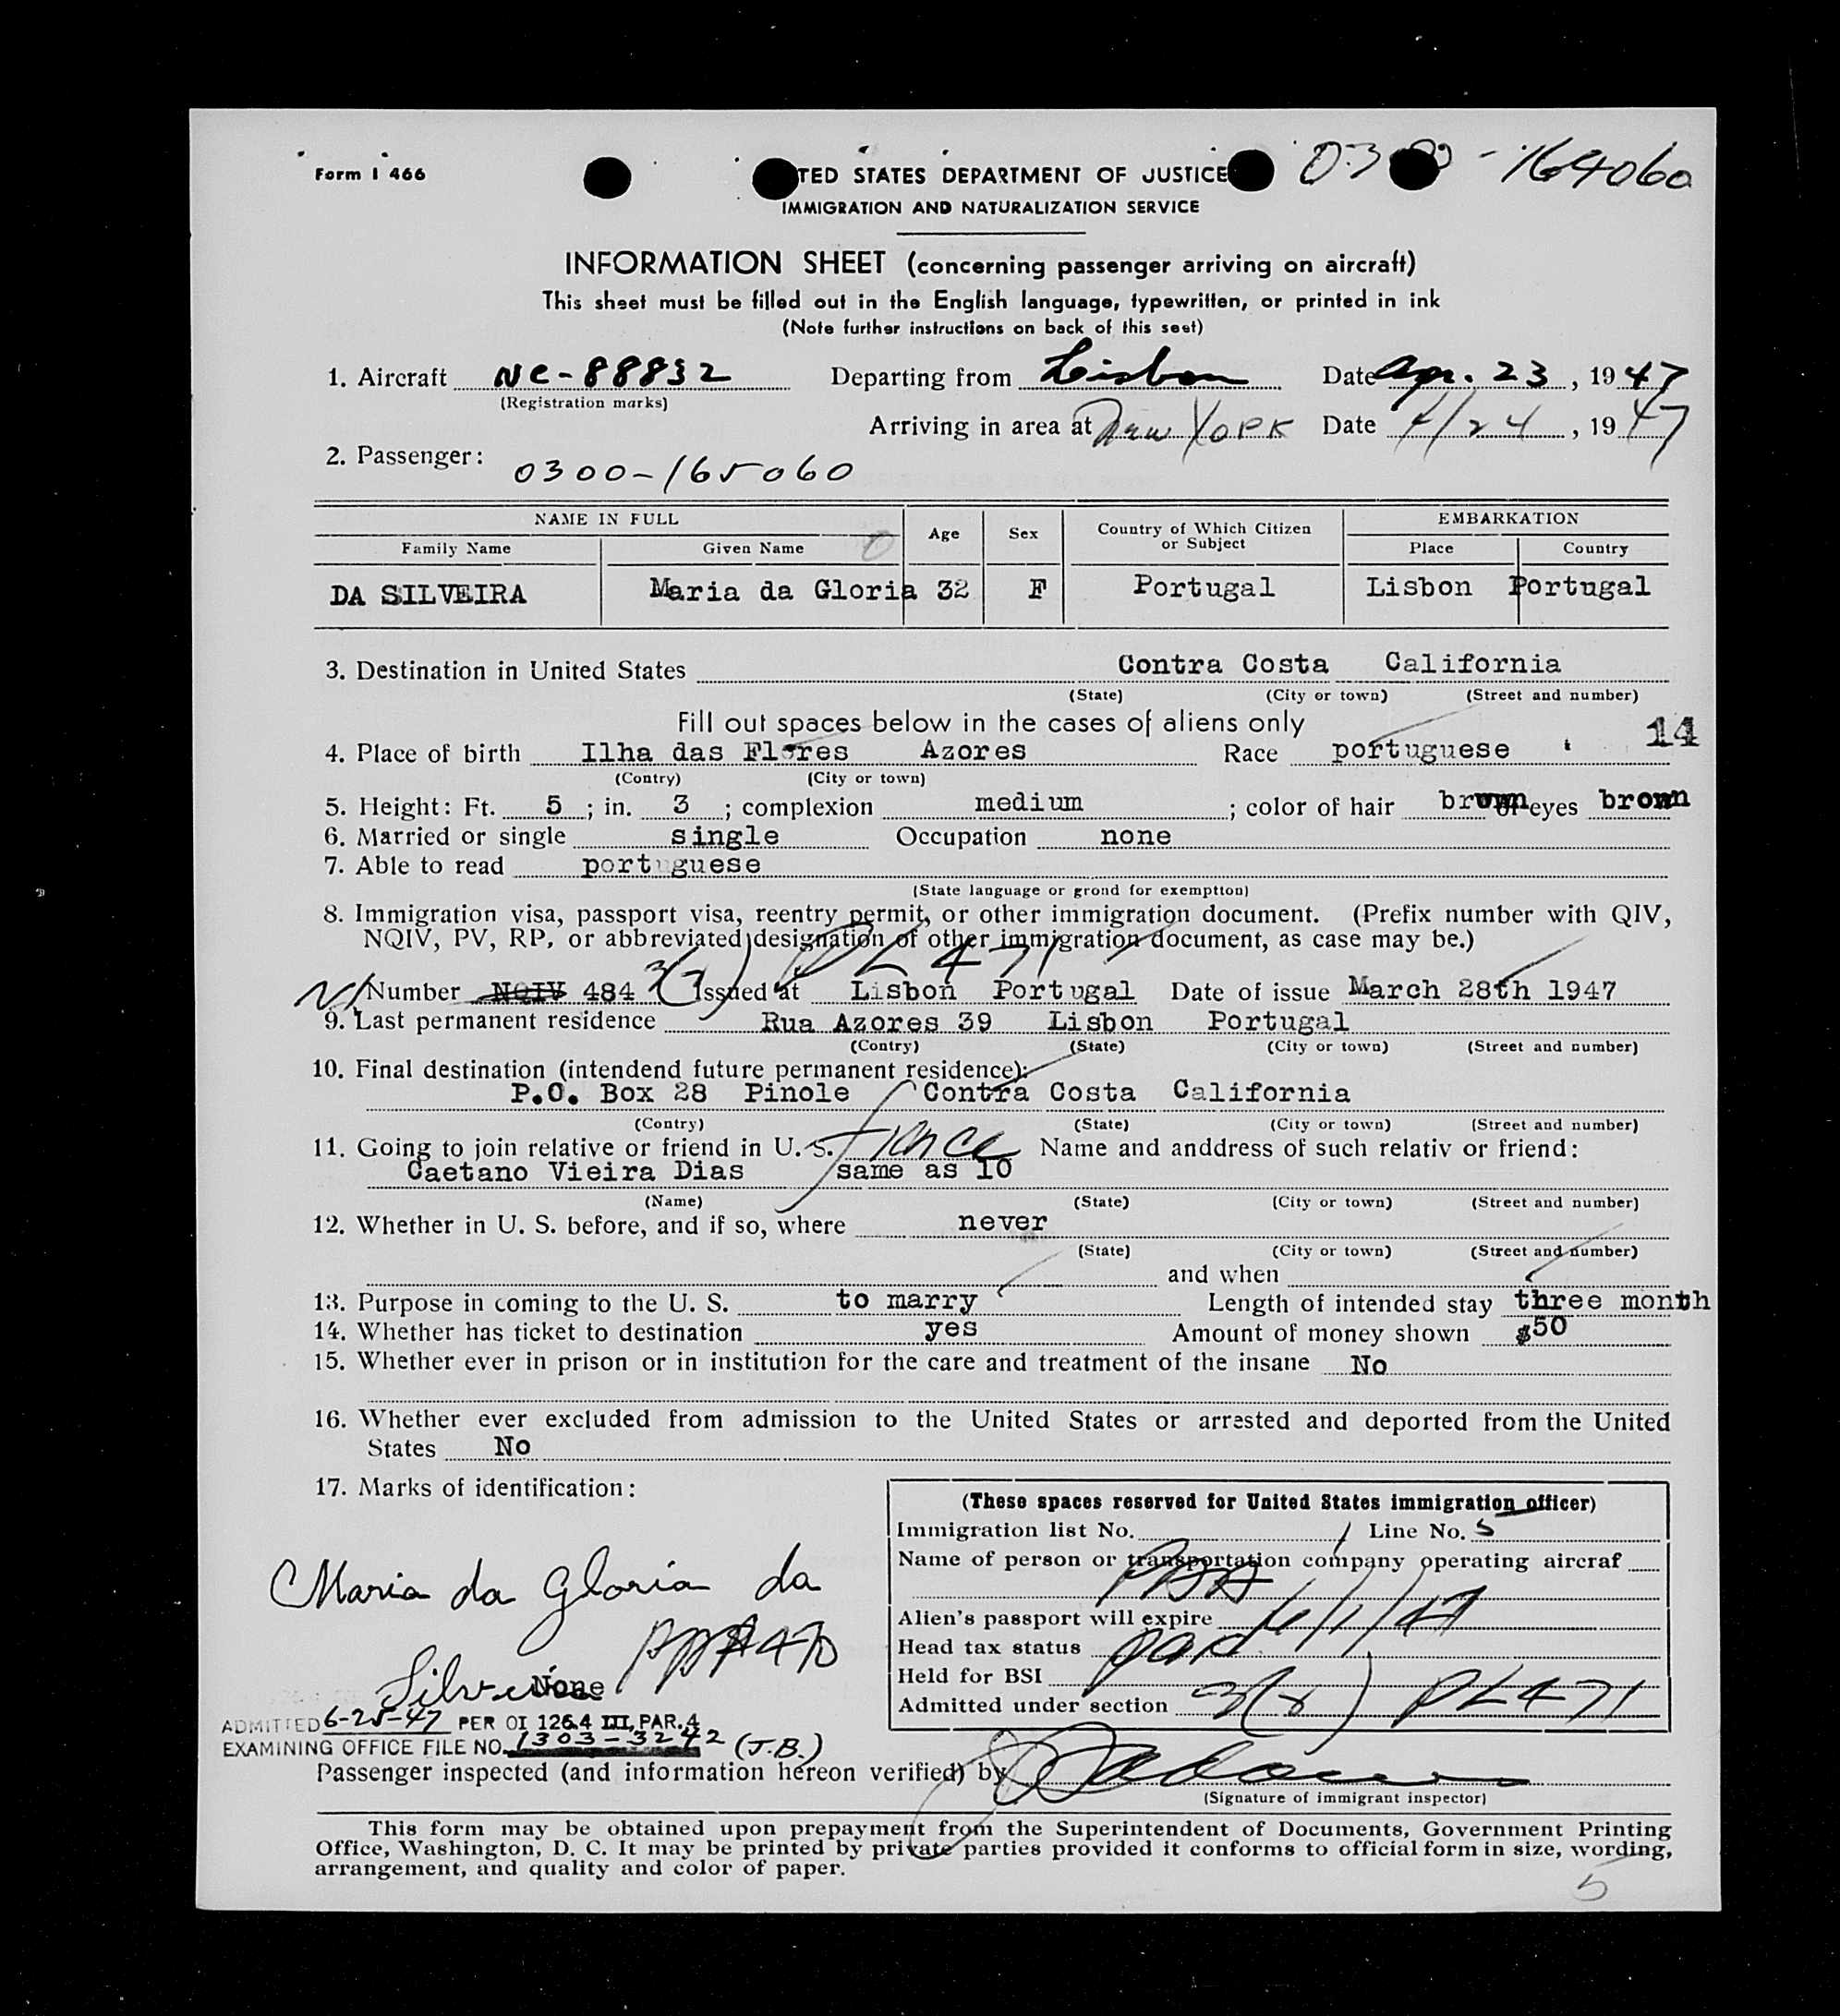 Form I 466
TED STATES DEPARTMENT OF JUSTICE
-164060
IMMIGRATION AND NATURALIZATION SERVICE
INFORMATION SHEET (concerning passenger arriving on aircraft)
This sheet must be filled out in the English language, typewritten, or printed in ink
(Note further instructions on back of this seet)
1. Aircraft NC-88832 Departing from Lisbon Date Apr. 23, 1947
(Registration marks)
Arriving in area at New York Date 4/24, 1947
2. Passenger: 0300-165060
NAME IN FULL Age Sex Country of Which Citizen or Subject EMBARKATION
Family Name Given Name Place Country
DA SILVEIRA Maria da Gloria 32 F Portugal Lisbon Portugal
3. Destination in United States Contra Costa California
(State) (City or town) (Street and number)
Fill out spaces below in the cases of aliens only
14
4. Place of birth Ilha das Flores Azores Race portuguese
(Contry) (City or town)
5. Height: Ft. 5 ; in. 3 ; complexion medium ; color of hair brown eyes brown
6. Married or single single Occupation none
7. Able to read portuguese
(State language or grond for exemptton)
8. Immigration visa, passport visa, reentry permit, or other immigration document. (Prefix number with QIV,
NQIV, PV, RP, or abbreviated designation of other immigration document, as case may be.)
PL 471
Number NQIV 484 Issued at Lisbon Portugal Date of issue March 28th 1947
9. Last permanent residence Rua Azores 39 Lisbon Portugal
(Contry) (State) (City or town) (Street and number)
10. Final destination (intendend future permanent residence):
P.O. Box 28 Pinole Contra Costa California
(Contry) (State) (City or town) (Street and number)
11. Going to join relative or friend in U. S. fiance Name and anddress of such relativ or friend:
Caetano Vieira Dias same as 10
(Name) (State) (City or town) (Street and number)
12. Whether in U. S. before, and if so, where never
(State) (City or town) (Street and number)
and when
13. Purpose in coming to the U. S. to marry Length of intended stay three month
14. Whether has ticket to destination yes Amount of money shown $50
15. Whether ever in prison or in institution for the care and treatment of the insane No
16. Whether ever excluded from admission to the United States or arrested and deported from the United
States No
17. Marks of identification:
(These spaces reserved for United States immigration officer)
Immigration list No. 1 Line No. 5
Name of person or transportation company operating aircraf
PAA
Alien's passport will expire
Head tax status paid
Held for BSI
Admitted under section PL471
Maria da Gloria da
Silveira
None
ADMITTED 6-25-47 PER OI 126.4 III, PAR. 4
EXAMINING OFFICE FILE NO. 1303-3242 (J.B.)
Passenger inspected (and information hereon verified) by
(Signature of immigrant inspector)
This form may be obtained upon prepayment from the Superintendent of Documents, Government Printing
Office, Washington, D. C. It may be printed by private parties provided it conforms to official form in size, wording,
arrangement, and quality and color of paper.
5